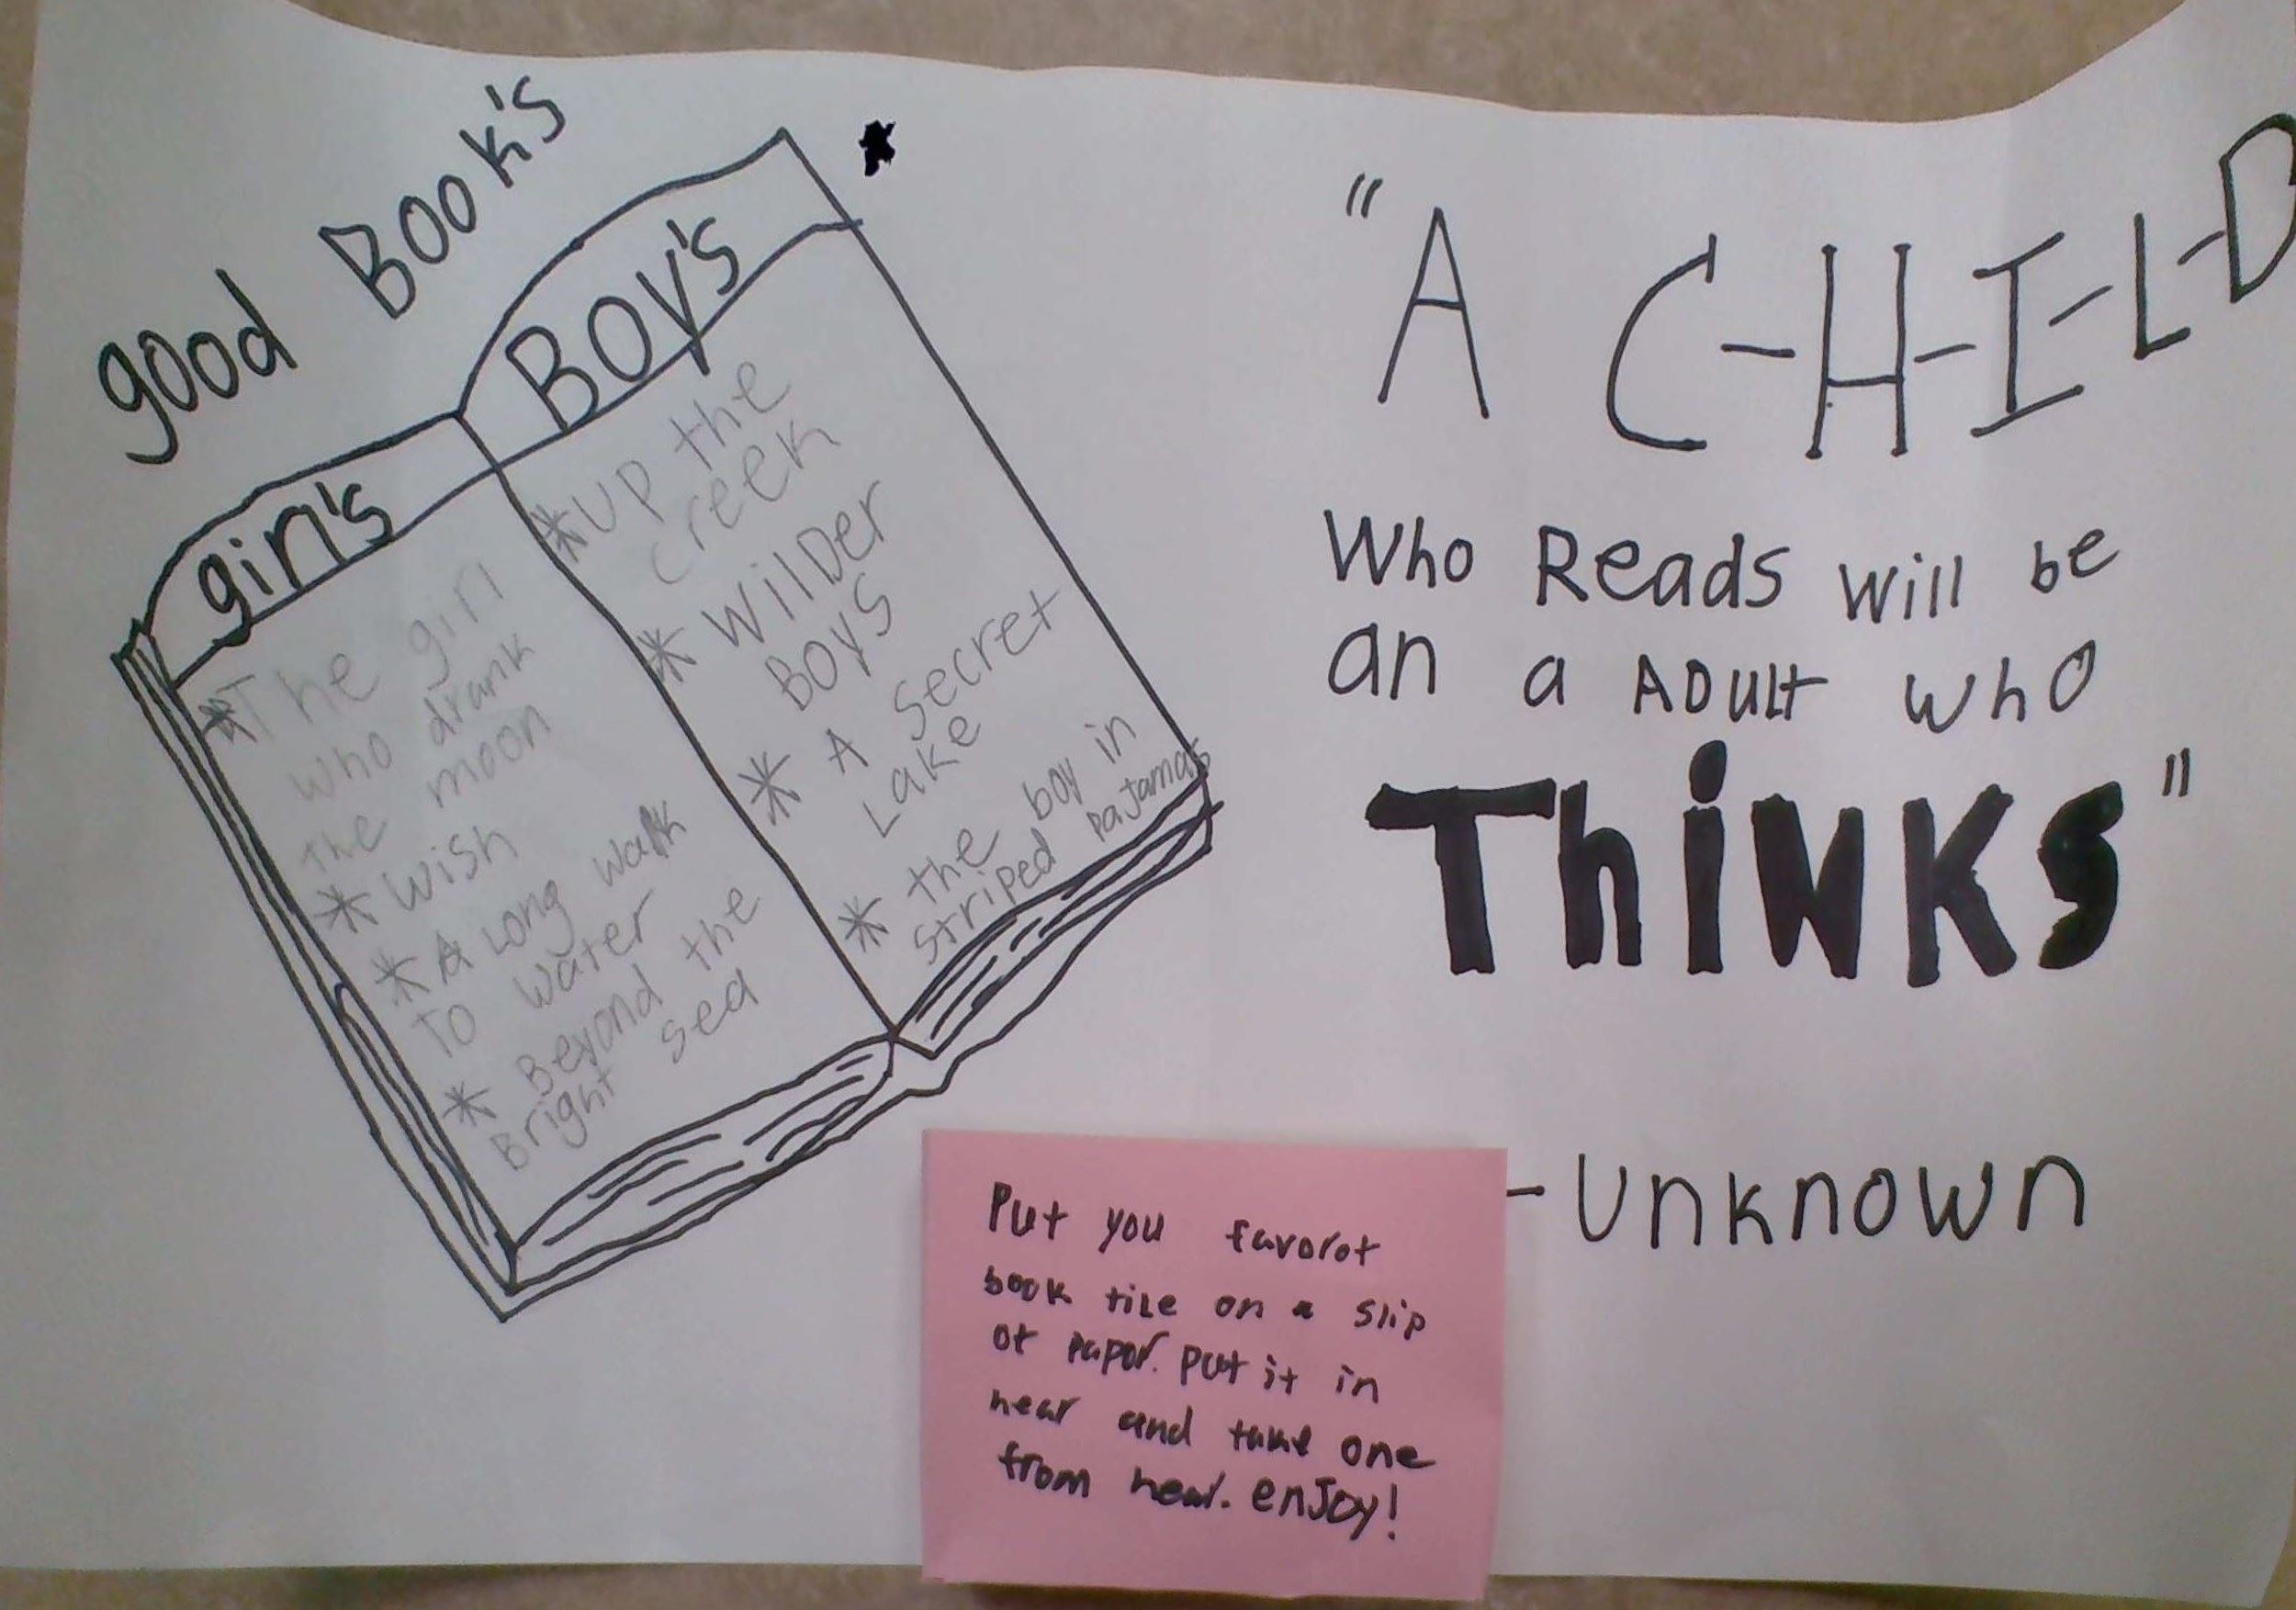 good Book's
girl's
*The girl
who drank
the moon
* Wish
* A Long walk
To water
* Beyond the
Bright sea
Boy's
*Up the
creek
* WilDer
Boys
* A Secret
Lake
* the boy in
striped pajamas
"A C-H-I-L-D
Who Reads will be
an a ADult who
ThiNKS"
-Unknown
Put you favorot
book tile on a slip
of papor. put it in
hear and take one
from hear. enJoy!